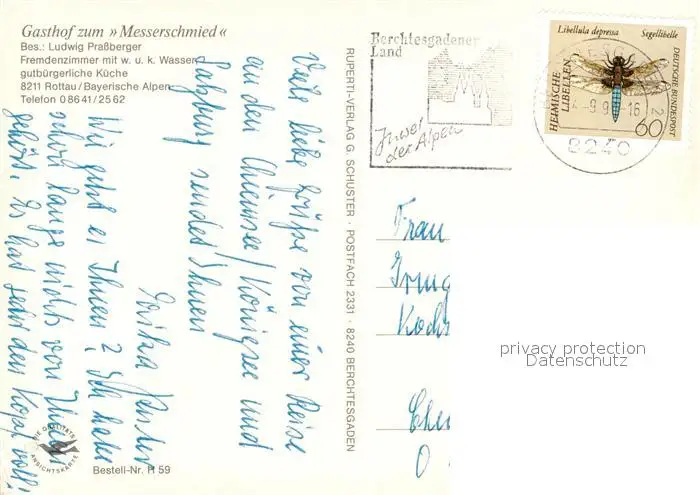 Gasthof zum »Messerschmied«
Bes.: Ludwig Praßberger
Fremdenzimmer mit w. u. k. Wasser
gutbürgerliche Küche
8211 Rottau/Bayerische Alpen
Telefon 08641/2562
Viele liebe Grüße von einer Reise
an den Chiemsee/Königsee und
Salzburg sendet Ihnen
Wie geht es Ihnen? Ich habe
schon lange nichts von Ihnen
gehört. Es hat jeder den Kopf voll!
DIE QUALITÄTS
ANSICHTSKARTE
Bestell-Nr. R 59
RUPERTI-VERLAG G. SCHUSTER · POSTFACH 2331 · 8240 BERCHTESGADEN
Berchtesgadener
Land
Juwel
der Alpen
Libellula depressa Segellibelle
HEIMISCHE
LIBELLEN
DEUTSCHE BUNDESPOST
60
8240
Frau
privacy protection
Datenschutz